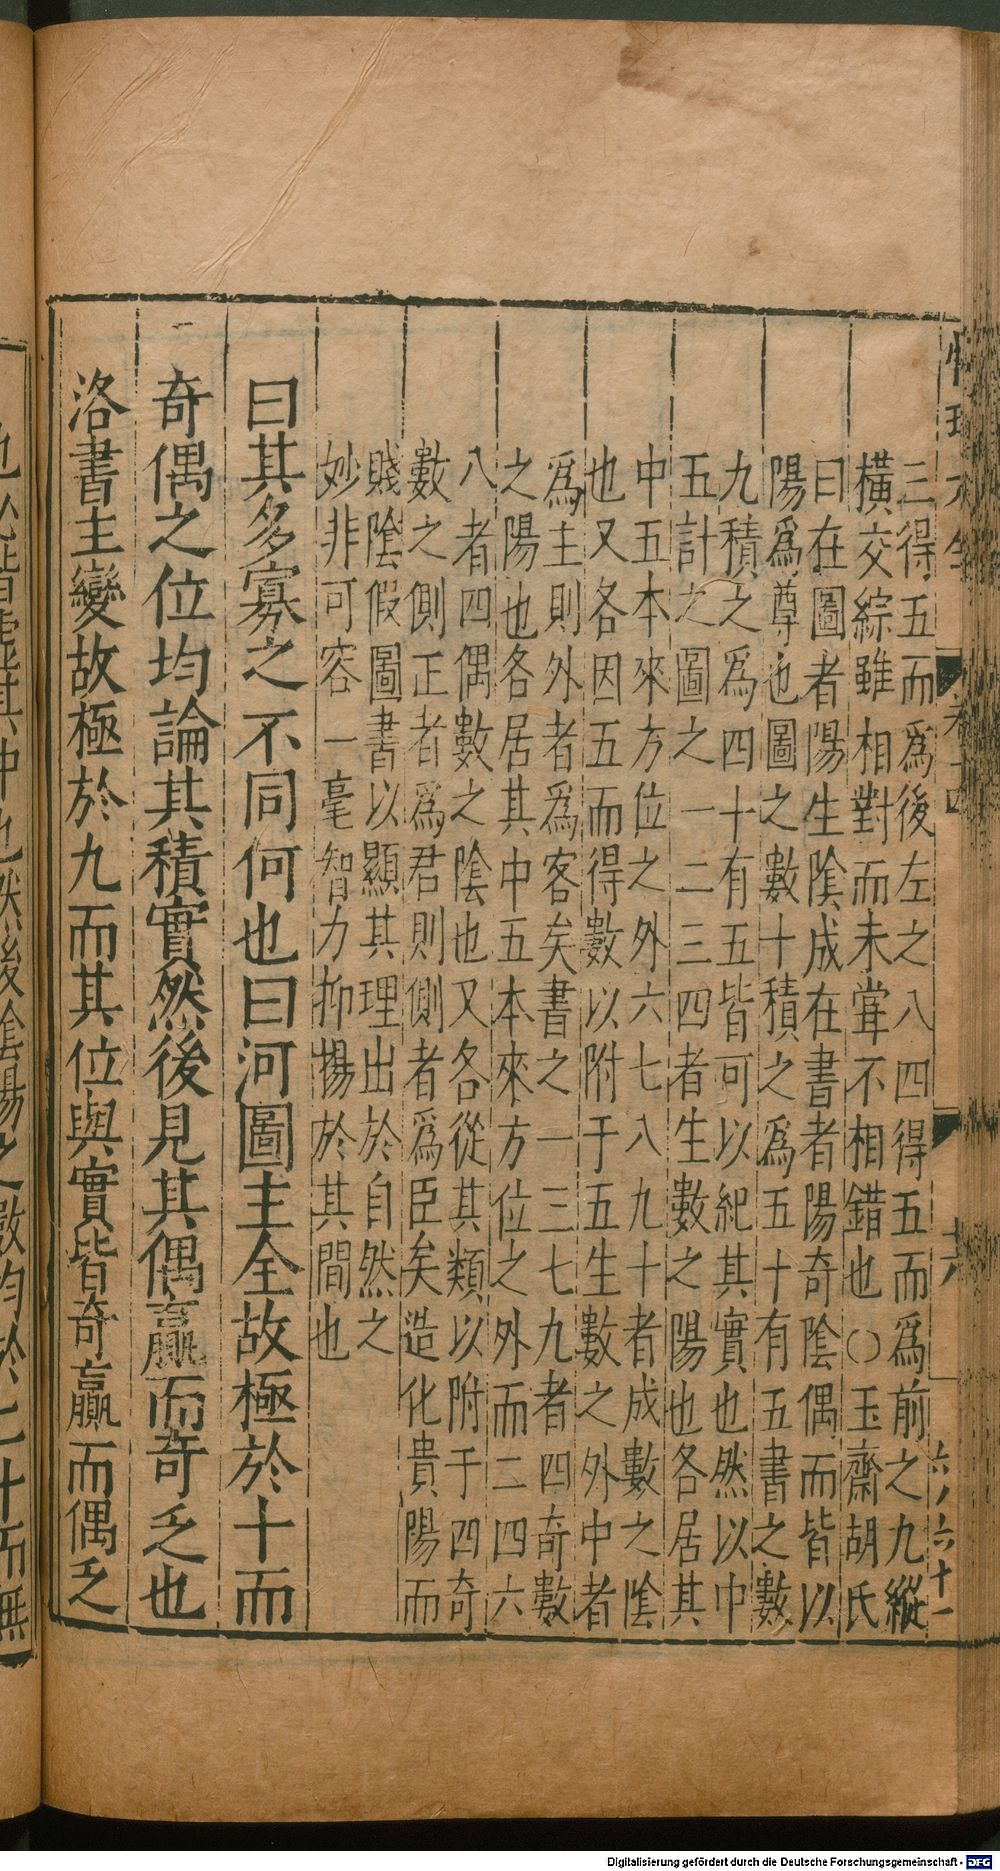 三得五而為後左之八四得五而為前之九縱
橫交綜雖相對而未甞不相錯也○玉齋胡氏
曰在圖者陽生陰成在書者陽奇陰偶而皆以
陽為尊也圖之數十積之為五十有五書之數
九積之為四十有五皆可以紀其實也然以中
五計之圖之一二三四者生數之陽也各居其
中五本來方位之外六七八九十者成數之陰
也又各因五而得數以附于五生數之外中者
為主則外者為客矣書之一三七九者四奇數
之陽也各居其中五本來方位之外而二四六
八者四偶數之陰也又各從其類以附于四奇
數之側正者為君則側者為臣矣造化貴陽而
賤陰假圖書以顯其理出於自然之
妙非可容一毫智力抑揚於其間也
曰其多寡之不同何也曰河圖主全故極於十而
奇偶之位均論其積實然後見其偶贏而奇乏也
洛書主變故極於九而其位與實皆奇贏而偶乏
性理大全
卷十四
十六
六ノ六十一
Digitalisierung gefördert durch die Deutsche Forschungsgemeinschaft - DFG